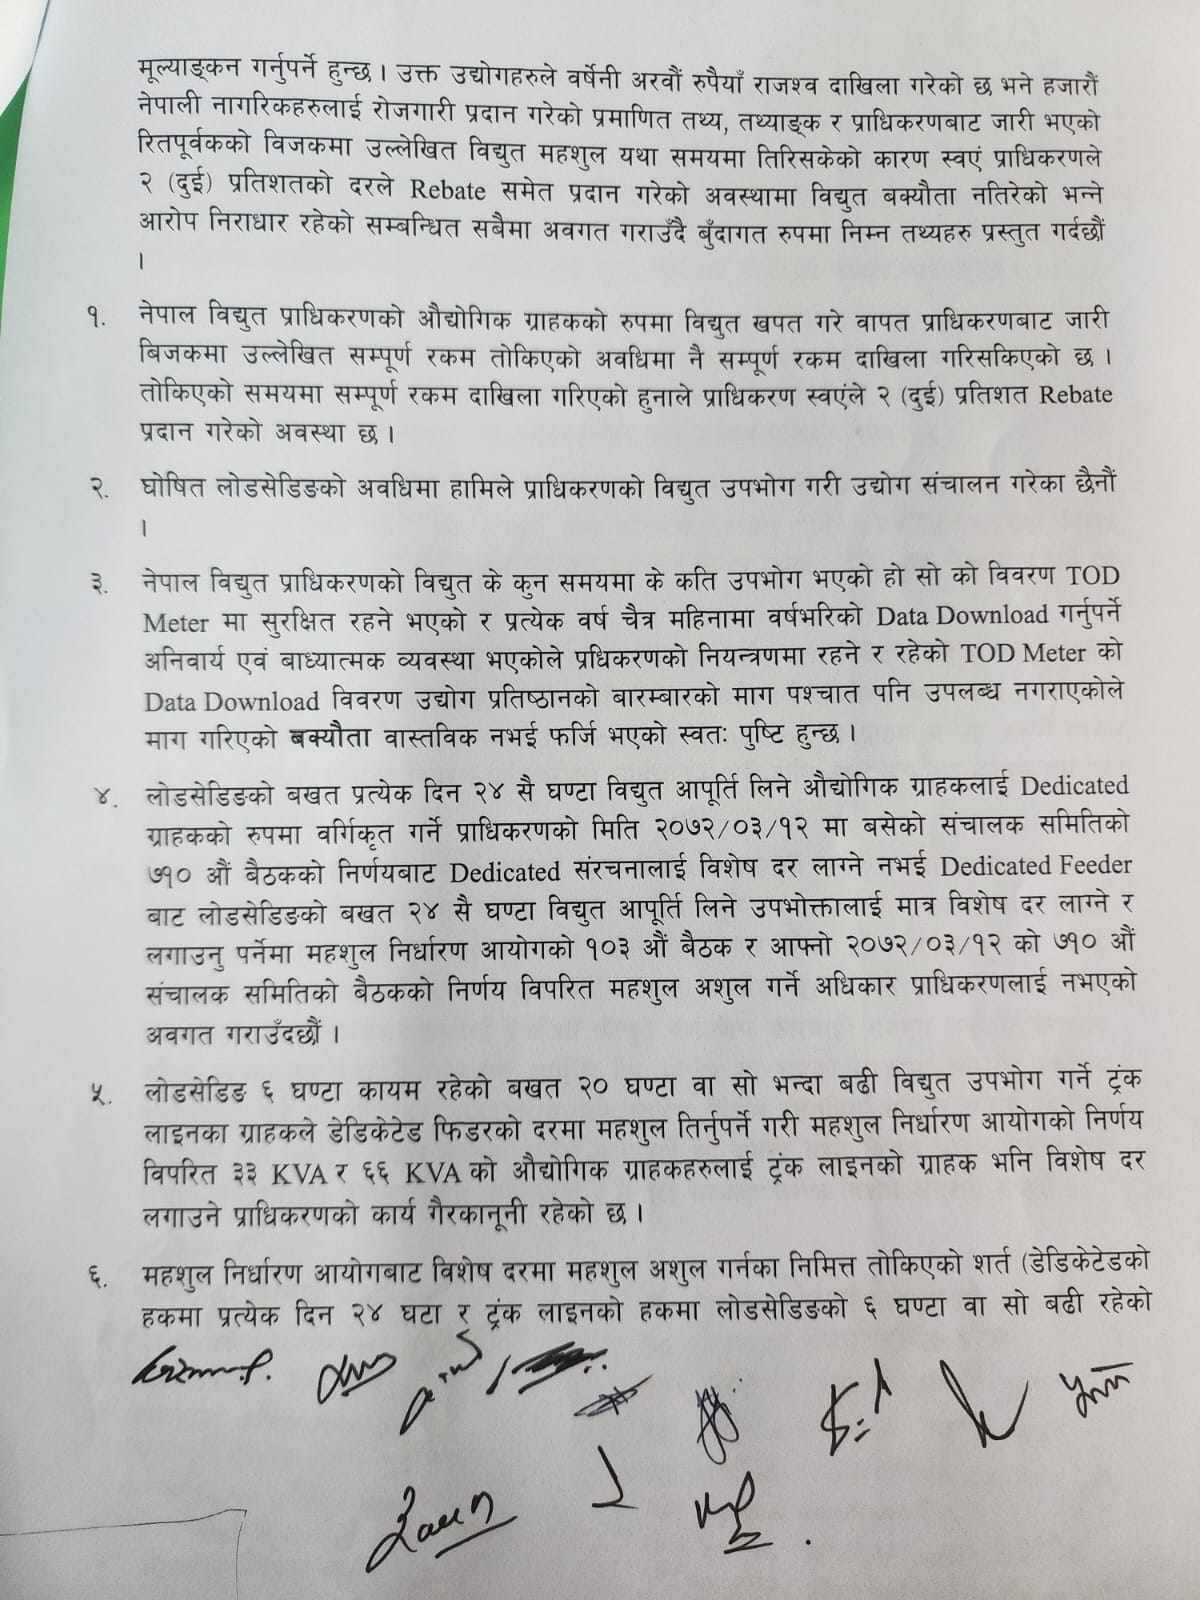 मूल्याङ्कन गर्नुपर्ने हुन्छ । उक्त उद्योगहरुले वर्षेनी अरवौं रुपैयाँ राजश्व दाखिला गरेको छ भने हजारौं
नेपाली नागरिकहरुलाई रोजगारी प्रदान गरेको प्रमाणित तथ्य, तथ्याङ्क र प्राधिकरणबाट जारी भएको
रितपूर्वकको विजकमा उल्लेखित विद्युत महशुल यथा समयमा तिरिसकेको कारण स्वएं प्राधिकरणले
२ (दुई) प्रतिशतको दरले Rebate समेत प्रदान गरेको अवस्थामा विद्युत बक्यौता नतिरेको भन्ने
आरोप निराधार रहेको सम्बन्धित सबैमा अवगत गराउँदै बुँदागत रुपमा निम्न तथ्यहरु प्रस्तुत गर्दछौं
।
१. नेपाल विद्युत प्राधिकरणको औद्योगिक ग्राहकको रुपमा विद्युत खपत गरे वापत प्राधिकरणबाट जारी
बिजकमा उल्लेखित सम्पूर्ण रकम तोकिएको अवधिमा नै सम्पूर्ण रकम दाखिला गरिसकिएको छ ।
तोकिएको समयमा सम्पूर्ण रकम दाखिला गरिएको हुनाले प्राधिकरण स्वएंले २ (दुई) प्रतिशत Rebate
प्रदान गरेको अवस्था छ ।
२. घोषित लोडसेडिङको अवधिमा हामिले प्राधिकरणको विद्युत उपभोग गरी उद्योग संचालन गरेका छैनौं
।
३. नेपाल विद्युत प्राधिकरणको विद्युत के कुन समयमा के कति उपभोग भएको हो सो को विवरण TOD
Meter मा सुरक्षित रहने भएको र प्रत्येक वर्ष चैत्र महिनामा वर्षभरिको Data Download गर्नुपर्ने
अनिवार्य एवं बाध्यात्मक व्यवस्था भएकोले प्रधिकरणको नियन्त्रणमा रहने र रहेको TOD Meter को
Data Download विवरण उद्योग प्रतिष्ठानको बारम्बारको माग पश्चात पनि उपलब्ध नगराएकोले
माग गरिएको बक्यौता वास्तविक नभई फर्जि भएको स्वतः पुष्टि हुन्छ ।
४. लोडसेडिङको बखत प्रत्येक दिन २४ सै घण्टा विद्युत आपूर्ति लिने औद्योगिक ग्राहकलाई Dedicated
ग्राहकको रुपमा वर्गिकृत गर्ने प्राधिकरणको मिति २०७२/०३/१२ मा बसेको संचालक समितिको
७१० औं बैठकको निर्णयबाट Dedicated संरचनालाई विशेष दर लाग्ने नभई Dedicated Feeder
बाट लोडसेडिङको बखत २४ सै घण्टा विद्युत आपूर्ति लिने उपभोक्तालाई मात्र विशेष दर लाग्ने र
लगाउनु पर्नेमा महशुल निर्धारण आयोगको १०३ औं बैठक र आफ्नो २०७२/०३/१२ को ७१० औं
संचालक समितिको बैठकको निर्णय विपरित महशुल अशुल गर्ने अधिकार प्राधिकरणलाई नभएको
अवगत गराउँदछौं ।
५. लोडसेडिङ ६ घण्टा कायम रहेको बखत २० घण्टा वा सो भन्दा बढी विद्युत उपभोग गर्ने ट्रंक
लाइनका ग्राहकले डेडिकेटेड फिडरको दरमा महशुल तिर्नुपर्ने गरी महशुल निर्धारण आयोगको निर्णय
विपरित ३३ KVA र ६६ KVA को औद्योगिक ग्राहकहरुलाई ट्रंक लाइनको ग्राहक भनि विशेष दर
लगाउने प्राधिकरणको कार्य गैरकानूनी रहेको छ ।
६. महशुल निर्धारण आयोगबाट विशेष दरमा महशुल अशुल गर्नका निमित्त तोकिएको शर्त (डेडिकेटेडको
हकमा प्रत्येक दिन २४ घटा र ट्रंक लाइनको हकमा लोडसेडिङको ६ घण्टा वा सो बढी रहेको